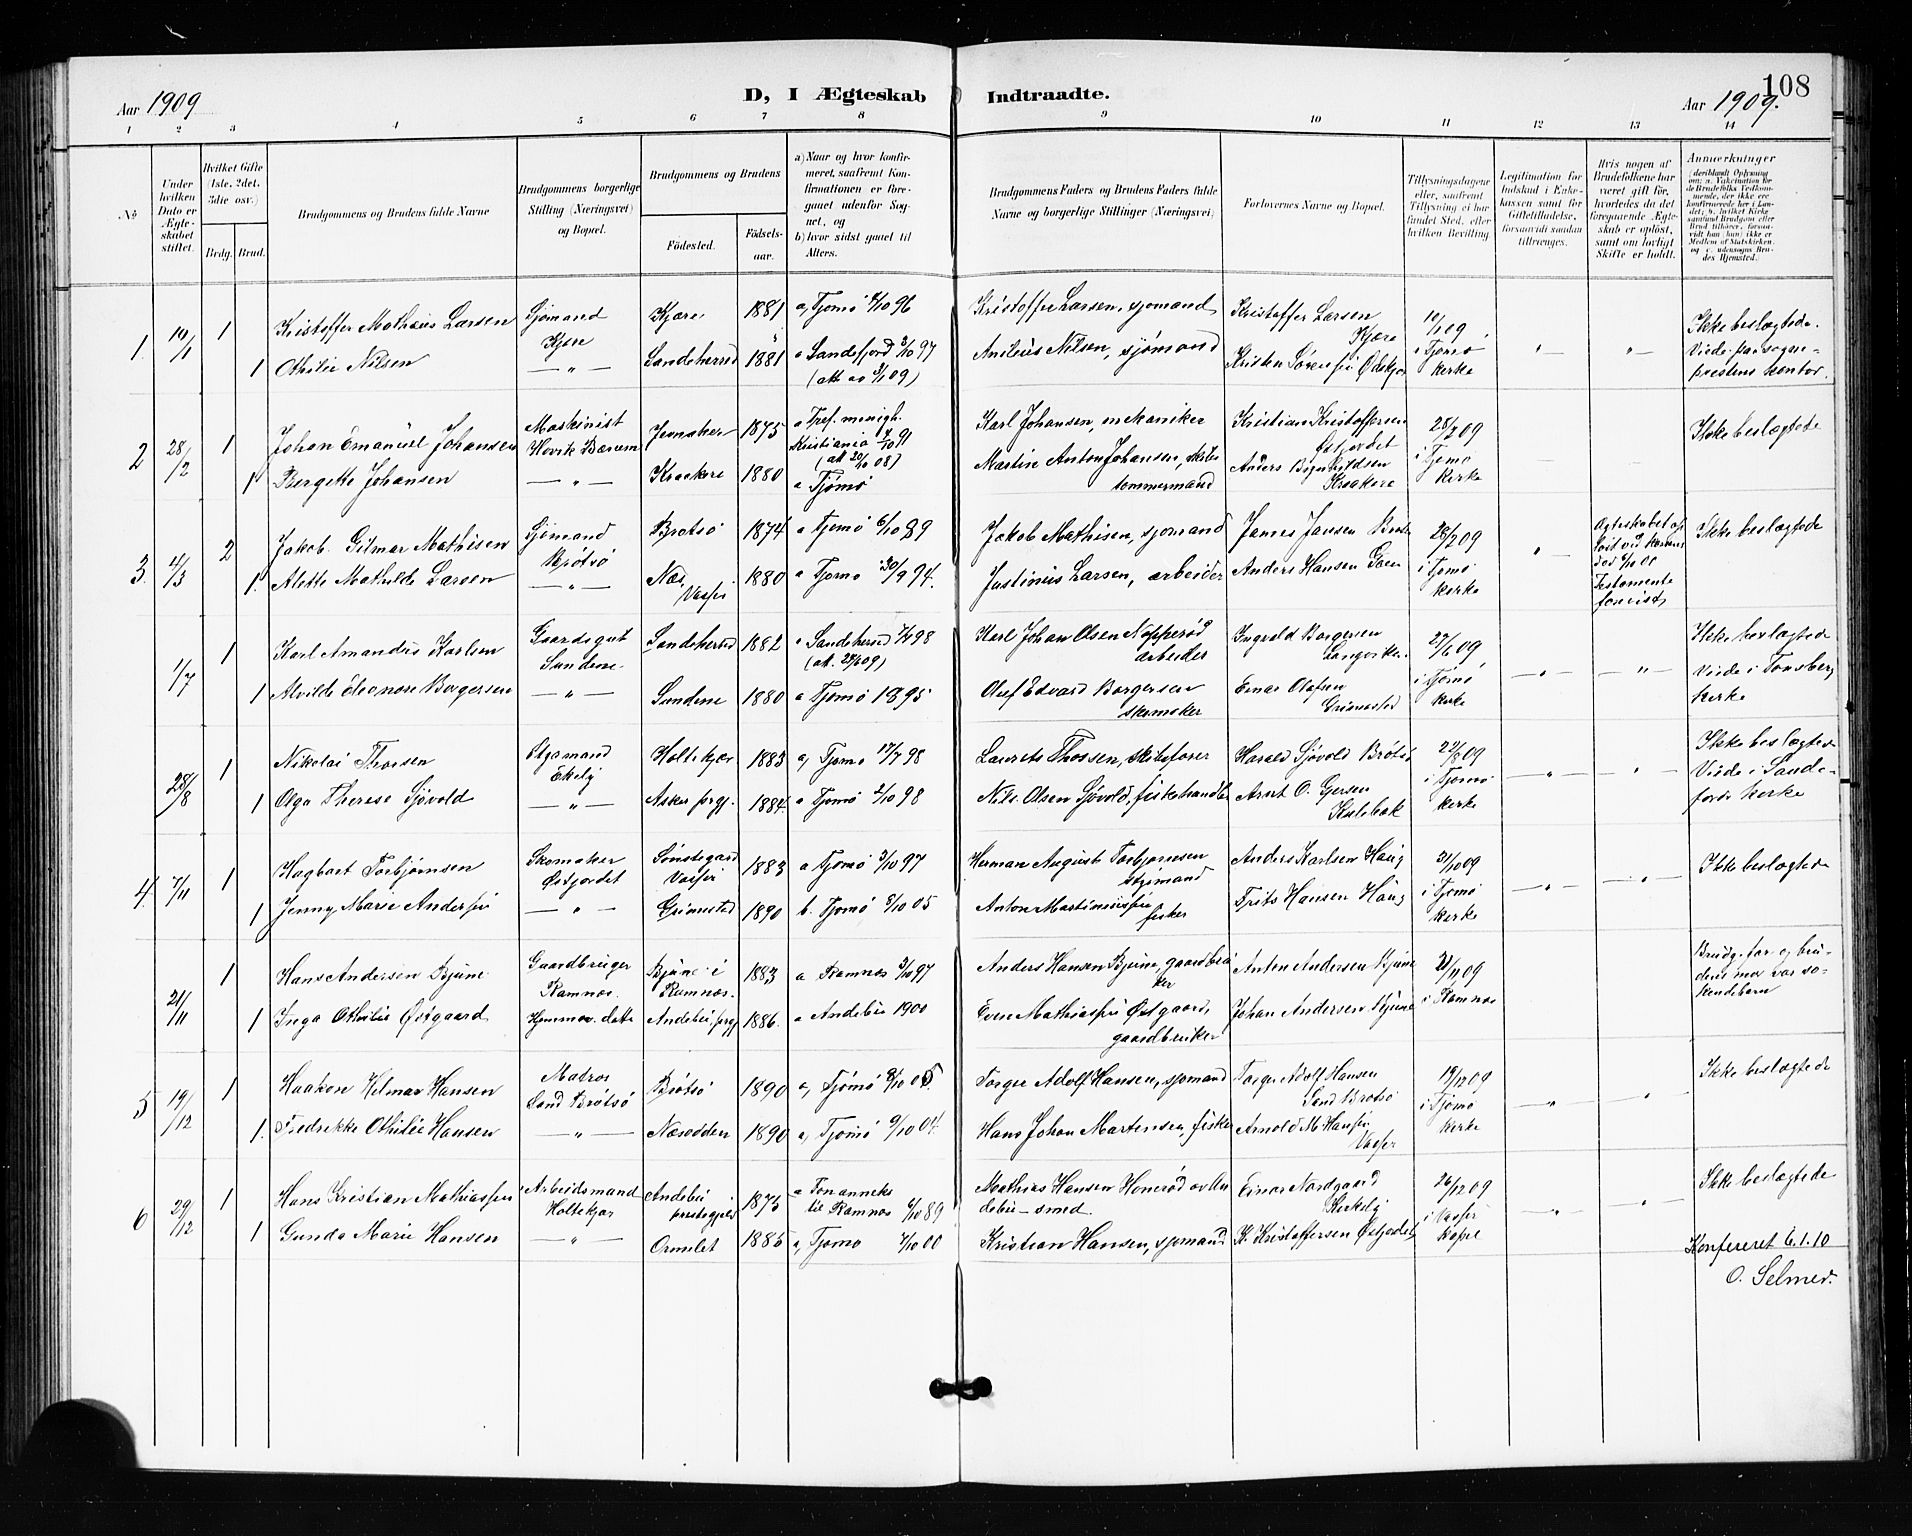 108
Aar 1909
D, I Ægteskab Indtraadte.
Aar 1909.
1 2 3 4 5 6 7 8 9 10 11 12 13 14
No
Under hvilken Dato er Ægteskabet stiftet.
Hvilket Gifte (1ste, 2det, 3die osv.)
Brdg. Brud.
Brudgommens og Brudens fulde Navne
Brudgommens borgerlige Stilling (Næringsvei) og Bopæl.
Brudgommens og Brudens
Födested.
Födselsaar.
a) Naar og hvor konfirmeret, saafremt Konfirmationen er foregaaet udenfor Sognet, og
b) hvor sidst gaaet til Alters.
Brudgommens Faders og Brudens Faders fulde Navne og borgerlige Stillinger (Næringsvei)
Forlovernes Navne og Bopæl.
Tillysningsdagene eller, saafremt Tillysning ei har fundet Sted, efter hvilken Bevilling
Legitimation for Indskud i Enkekassen samt for Giftetilladelse, forsaavidt saadan tiltrænges.
Hvis nogen af Brudefolkene har været gift för, hvorledes da det foregaaende Ægteskab er oplöst, samt om lovligt Skifte er holdt.
Anmærkninger
1. 10/1 1 Kristoffer Mathæus Larsen Sjømand Kjøre Kjære 1881 a, Tjømø 4/10 96 Kristoffer Larsen, sjømand Kristoffer Larsen Kjære 10/1 09 i Tjømø kirke Ikke beslægtede. Viede paa sogneprestens kontor.
1 Othilie Nilsen — " — Sandeherred 1881 a Sandefjord 3/10 97 (att. av 3/1 09) Anteus Nilsen, sjømand
2 28/2 1 Johan Emanuel Johansen Maskinist Høvik Bærum 1875 a Tref. menigh. Kristiania 4/10 91 (att. 20/10 08) Karl Johansen, mekaniker Kristian Kristoffersen 28/2 09 i Tjømø kirke Ikke beslegtede
1 Bergette Johansen — " — Kraakere 1880 a Tjømø Martin Anton Johansen, skibstømmermand Kraakere
3. 4/3 2 Jakob Gilmar Mathisen Sjømand Brøtsø Brøtsø 1874 a Tjømø 6/10 89 Jakob Mathisen, sjømand James Jansen 28/2 09 i Tjømø kirke Ægteskabet opløst ved konens død Testamente forevist Ikke beslægtede
1. Alette Mathilde Larsen — " — Næs, Vasser 1880 a Tjømø 30/9 94. Justinus Larsen, arbeider Anders Hansen
1/7 1 Karl Amandus Karlsen Gaardsgut Sundene Sandeherred 1882 a Sandeherred 98 Karl Johan Olsen Nøpperød arbeider Ingvald Borgersen 27/6 09 i Tjømø kirke Ikke beslægtede Viede i Tønsberg kirke
1 Alvilde Eleonore Borgersen — " — Sundene 1880 a Tjømø 1895 Oluf Edvard Borgersen skomaker Einar Olafsen Grimestad
28/8 1 Nikolai Thorsen Ekelig Holtekjær 1883 a, Tjømø 17/7 98 Laurets Thossen, skibsfører Harald Sjøvold Brøtsø 22/8 09 i Tjømø kirke Ikke beslægtede Viede i Sandefjords kirke
1 Olga Therese Sjøvold — " — Asker prgj. 1884. a Tjømø 2/10 98 Nils Olsen Sjøvold, fiskehandler Arnt O. Gjersen Kalebak
4. 7/11 1 Hagbart Torbjørnsen Skomaker Østfjordet Sønstegard Vasser 1883 a Tjømø 3/10 97 Herman August Torbjørnsen sjømand Anders Karlsen Haug 31/10 09 i Tjømø kirke Ikke beslægtede
1 Jenny Marie Andersen — " — Grimestad 1890 b. Tjømø 8/10 05 Anton Martiniussen fisker Frits Hansen Haug
21/11 1 Hans Andersen Bjune Gaardbruger Ramnæs. Bjune i Ramnæs. 1883 a Ramnæs 3/10 97 Anders Hansen Bjune, gaardbruker Anton Andersen Bjune 21/11 09 i Ramnæs Brudg. far og brudens mor var søskendebarn
1 Inga Othilie Østgaard Hjemmev. datter Andebu prgj. 1886. a Andebu 1900 Even Mathiassen Østgaard, gaardbruker Johan Andersen Bjune
5 19/12 1 Haakon Hilmar Hansen Matros Sand Brøtsø Brøtsø 1890 a, Tjømø 8/10 05. Torger Adolf Hansen, sjømand Torger Adolf Hansen Sand Brøtsø 19/12 09 i Tjømø kirke Ikke beslægtede
1. Fredrikke Othilie Hansen — " — Næsodden 1890 a, Tjømø 9/10 04. Hans Johan Martensen, fisker Arnold M. Hansen Vasser
6 29/12 1 Hans Kristian Mathiassen Arbeidsmand Holtekjær Andebu prestegjeld 1875 a Fon anneks til Ramnæs 6/10 89 Mathias Hansen Honerød av Andebu – smed. Einar Nordgaard Kirkelig 26/12 09 i Vasser kapel Ikke beslegtede
1 Gunda Marie Hansen — " — Ormelet 1885 a, Tjømø 7/10 00 Kristian Hansen, sjømand K. Kristoffersen Østfjordet
Konfereret 6.1.10
O. Selmer.